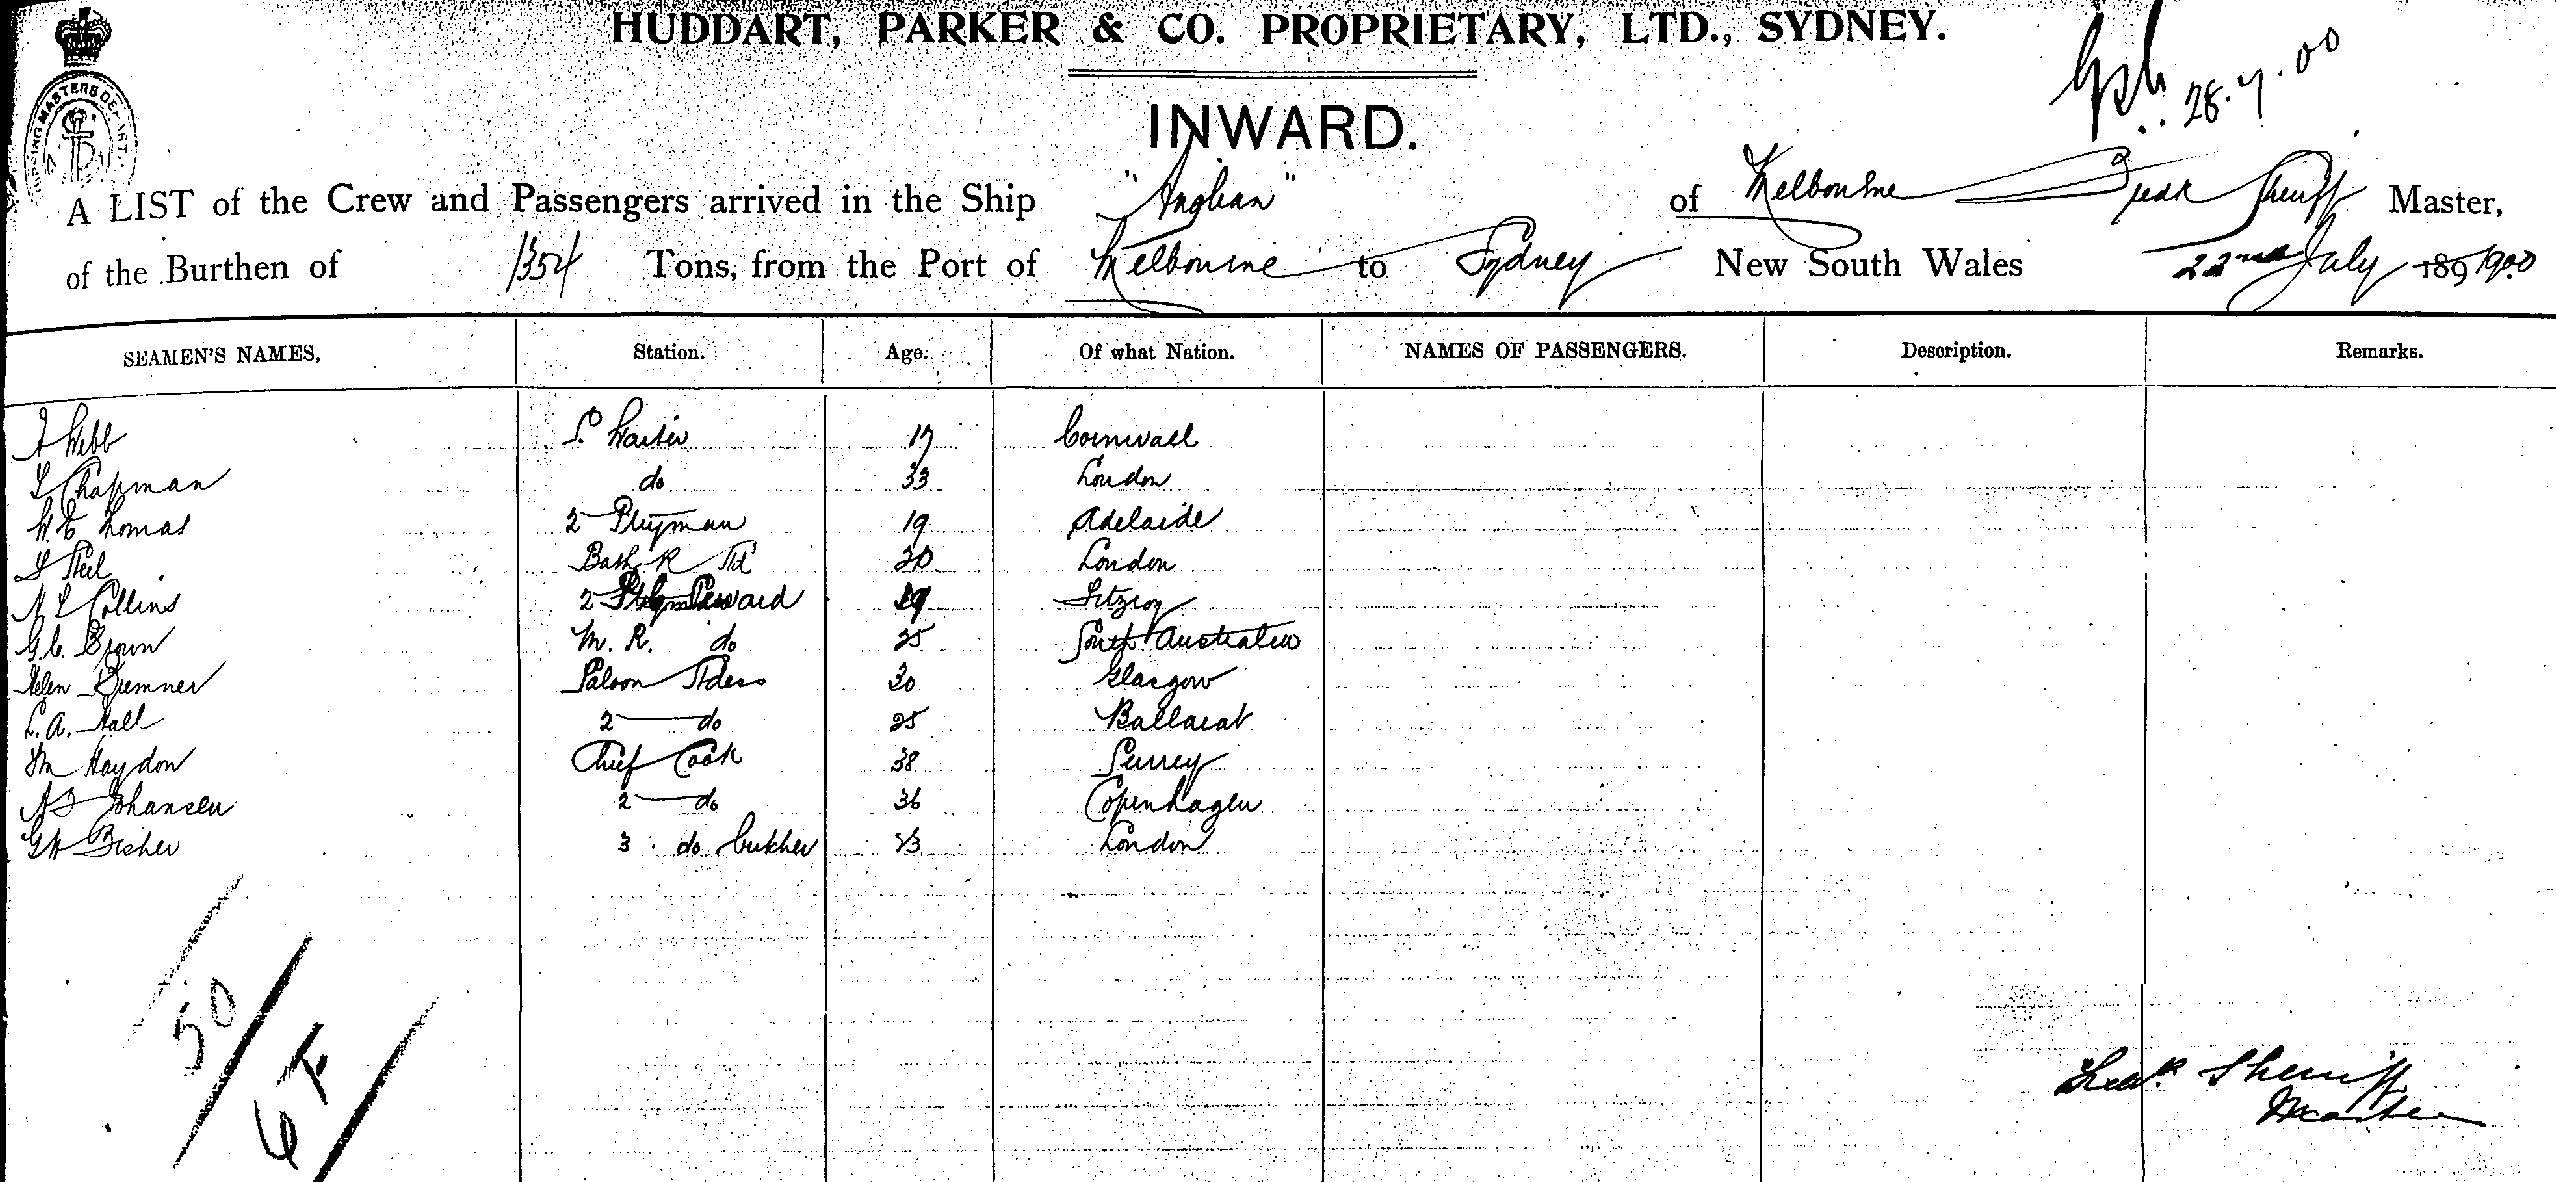 HUDDART, PARKER & CO. PROPRIETARY, LTD., SYDNEY.
28.7.00
INWARD.
A LIST of the Crew and Passengers arrived in the Ship "Anglian" of Melbourne Sheriff Master,
of the Burthen of 1354 Tons, from the Port of Melbourne to Sydney New South Wales 22nd July 189 1900
SEAMEN'S NAMES, Station. Age. Of what Nation. NAMES OF PASSENGERS. Description. Remarks.
Webb Waiter 17 Cornwall
Chapman do 33 London
Thomas 2 19 Adelaide
Bath R Std London
Collins 2 Steward Fitzroy
G.C. Brown M. R. do 25 South Australia
Helen Bremner Saloon Stdess 30 Glasgow
L. A. Hall 2 do 25 Ballarat
Wm Haydon Chief Cook 38 Surrey
Johansen 2 do 36 Copenhagen
G H Fisher 3 do butcher 23 London
50
Sheriff
Master